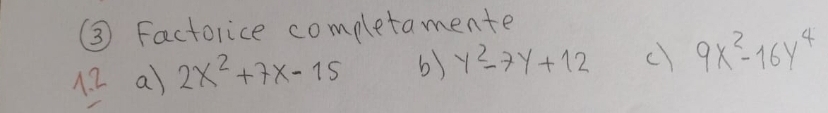 ③ Factorice completamente
1.2 a) 2X²+7X-15 b) Y²-7Y+12 c) 9X²-16Y⁴